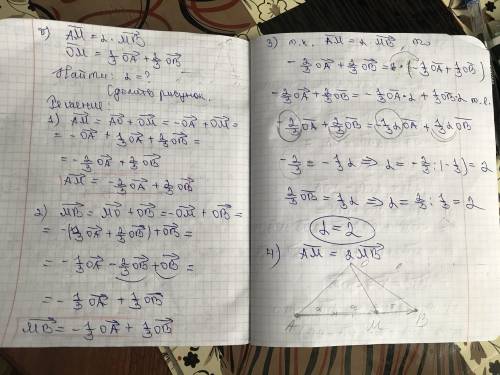 б) AM = 2 · MB
OM = 1/3 OA + 2/3 OB
Найти: 2 = ?
Сделать рисунок.
Решение:
1) AM = AO + OM = -OA + OM =
= -OA + 1/3 OA + 2/3 OB =
= -2/3 OA + 2/3 OB
AM = -2/3 OA + 2/3 OB
2) MB = MO + OB = -OM + OB =
= -(1/3 OA + 2/3 OB) + OB =
= -1/3 OA - 2/3 OB + OB =
= -1/3 OA + 1/3 OB
MB = -1/3 OA + 1/3 OB
3) т.к. AM = 2 MB то
-2/3 OA + 2/3 OB = 2 · (-1/3 OA + 1/3 OB)
-2/3 OA + 2/3 OB = -1/3 OA · 2 + 1/3 OB 2 т.е.
-2/3 OA + 2/3 OB = -1/3 2 OA + 1/3 2 OB
-2/3 = -1/3 2 ⇒ 2 = -2/3 : (-1/3) = 2
2/3 OB = 1/3 2 ⇒ 2 = 2/3 : 1/3 = 2
2 = 2
4) AM = 2 MB
O
A M B